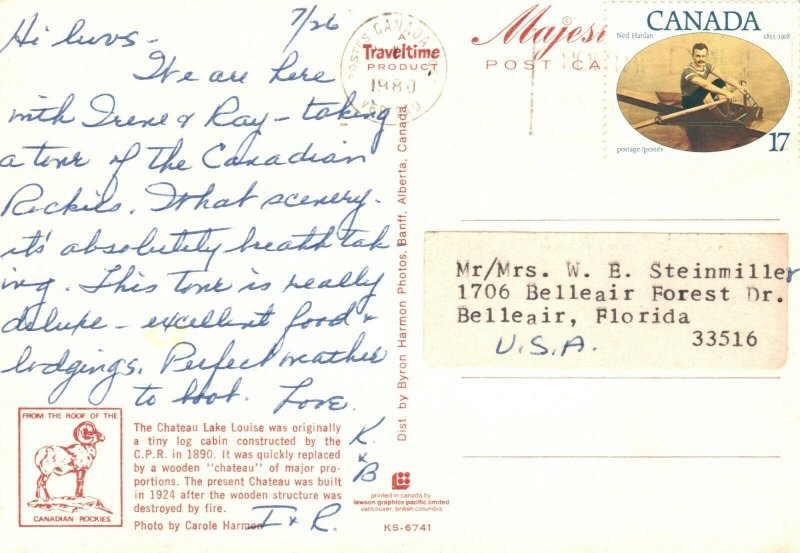 7/26
Hi luvs-
We are here
with Irene & Ray - taking
a tour of the Canadian
Rockies. What scenery -
it's absolutely breath tak
ing. This tour is really
deluxe - excellent food &
lodgings. Perfect weather
to boot. Love.
K.
&
B
I & R.
FROM THE ROOF OF THE
CANADIAN ROCKIES
The Chateau Lake Louise was originally
a tiny log cabin constructed by the
C.P.R. in 1890. It was quickly replaced
by a wooden "chateau" of major pro-
portions. The present Chateau was built
in 1924 after the wooden structure was
destroyed by fire.
Photo by Carole Harmon
printed in canada by
lawson graphics pacific limited
vancouver, british columbia
KS-6741
Dist. by Byron Harmon Photos, Banff, Alberta, Canada
A
Traveltime
PRODUCT
POSTES CANADA
1980
©
Majesti
POST CA
CANADA
Ned Hanlan
1855-1908
postage/postes
17
Mr/Mrs. W. E. Steinmiller
1706 Belleair Forest Dr.
Belleair, Florida
33516
U.S.A.